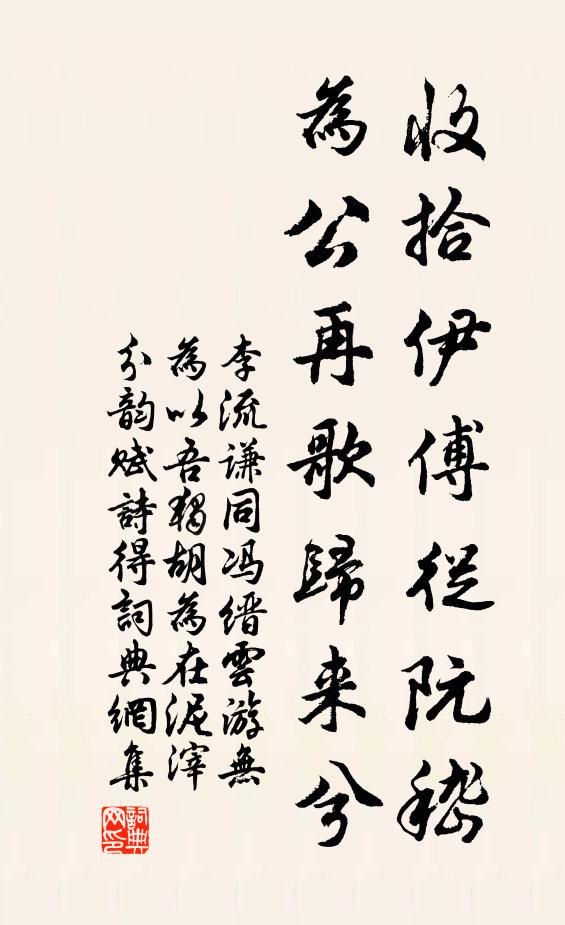 收拾伊傅從阮嵇
為公再歌歸来兮
李流謙同冯缙雲游無
為以吾獨胡為在泥滓
分韵赋詩得詞典網集
詞典
网印